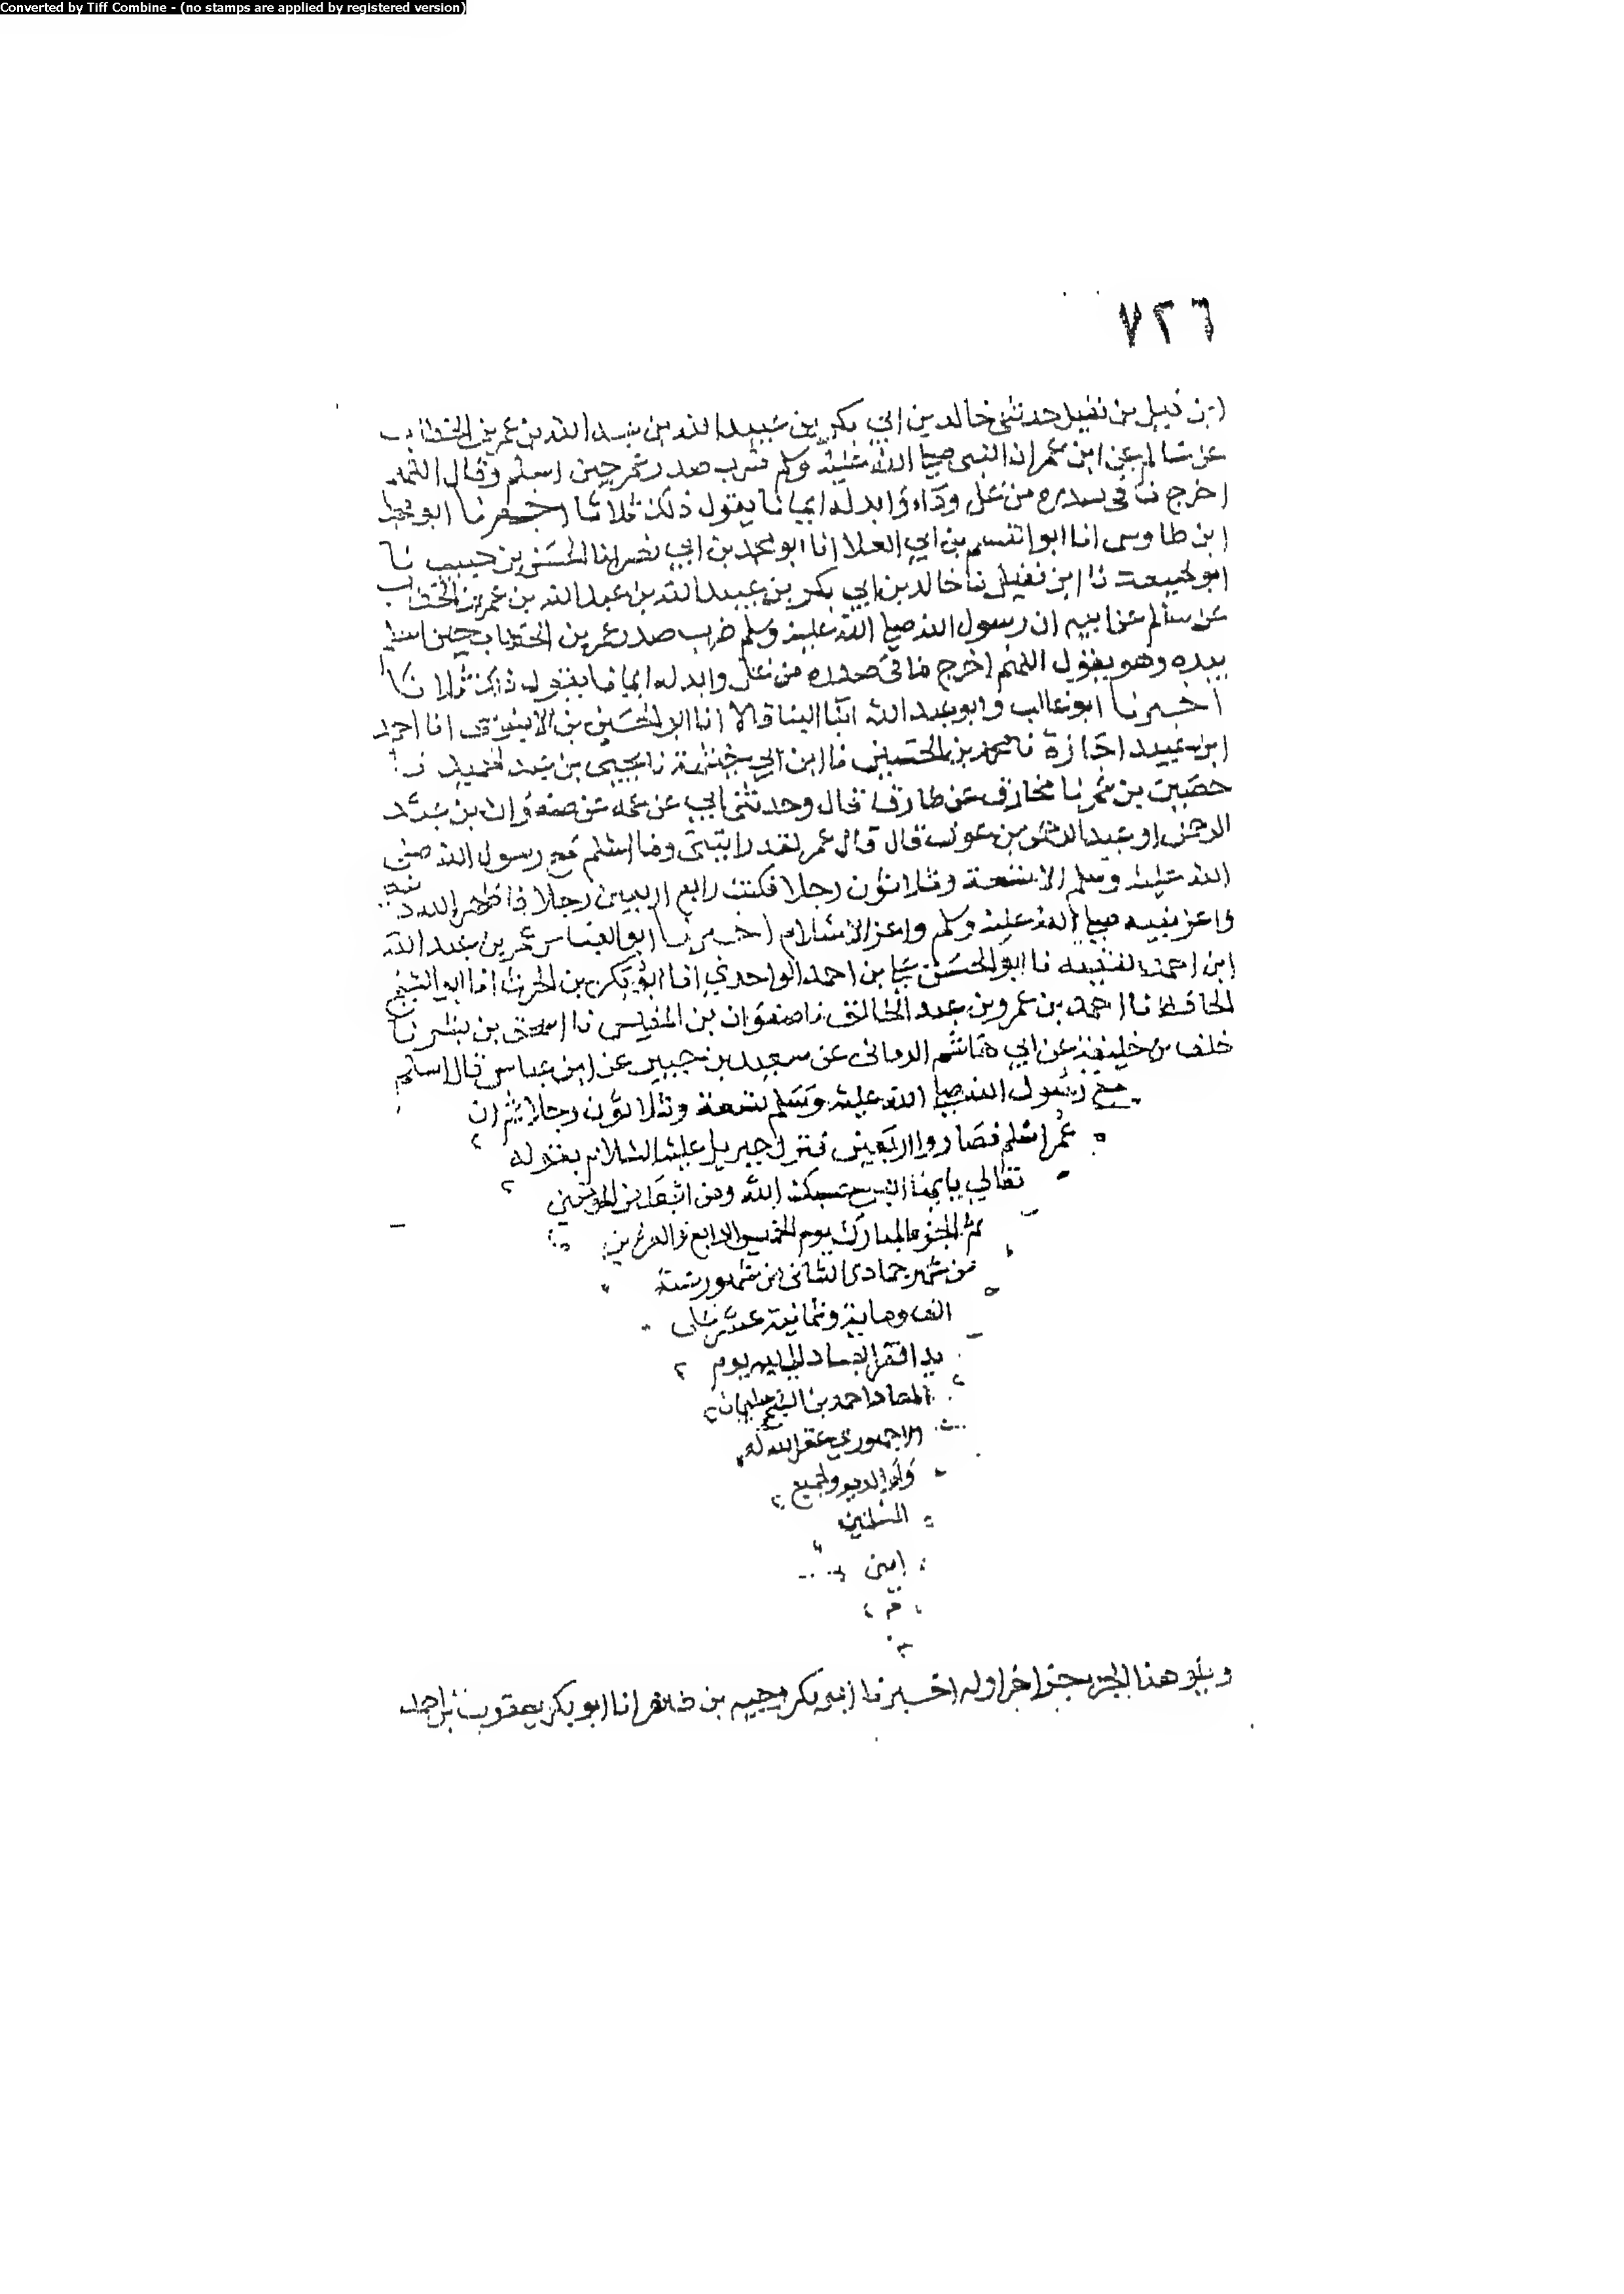 Converted by Tiff Combine - (no stamps are applied by registered version)
٧٢٦
ابن نفيل حدثني خالد بن ابي بكر بن عبيد الله بن عبد الله بن عمر بن الخطاب
عن سالم عن ابن عمر ان النبي صلي الله عليه وسلم ضرب صدر عمر حين اسلم وقال اللهم
اخرج ما في صدره من غل وداء وابدله ايمانا يقول ذلك ثلاثا اخبرنا ابو محمد
ابن طاوس انا ابو القسم بن ابي العلا انا ابو محمد بن ابي نصر انا الحسن بن حبيب نا
ابو نا ابن نفيل نا خالد بن ابي بكر بن عبيد الله بن عبد الله بن عمر بن الخطاب
عن سالم عن ابيه ان رسول الله صلي الله عليه وسلم ضرب صدر عمر بن الخطاب حين اسلم
بيده وهو يقول اللهم اخرج ما في صدره من غل وابدله ايمانا يقول ذلك ثلاثا
اخبرنا ابو غالب وابو عبد الله ابنا البنا قالا انا ابو الحسين بن الابنوسي انا احمد
ابن عبيد اجازة نا محمد بن الحسين نا ابن ابي خيثمة نا يحيى بن عبد الحميد نا
حصين بن عمر نا مخارق عن طارق قال وحدثني ابي عن عمه عن صفوان بن عبد
الرحمن او عبد الرحمن بن عوف قال قال عمر لقد رايتني وما اسلم مع رسول الله صلى
الله عليه وسلم الا تسعة وثلاثون رجلا فكنت رابع اربعين رجلا فاظهر الله دينه
واعز نبيه صلي الله عليه وسلم واعز الاسلام اخبرنا ابو العباس عمر بن عبد الله
ابن احمد الفقيه نا ابو الحسن علي بن احمد الواحدي انا ابو بكر بن الحرث انا ابو الشيخ
الحافظ نا احمد بن عمرو بن عبد الخالق نا صفوان بن المغلس نا اسحق بن بشر نا
خلف بن خليفة عن ابي هاشم الرماني عن سعيد بن جبير عن ابن عباس قال اسلم
مع رسول الله صلي الله عليه وسلم تسعة وثلاثون رجلا ثم ان
عمر اسلم فصاروا اربعين فنزل جبريل عليه السلام بقوله
تعالي يا يها النبي حسبك الله ومن اتبعك من المومنين
تم الجزء المبارك يوم الخميس الرابع والعشرين
من شهر جمادى الثاني من شهور سنة
الف وماية وثمانية عشر على
يد افقر العباد اليه يوم
المعاد احمد بن الشيخ سليمان
الاجهوري غفر الله له
ولوالديه ولجميع
المسلمين
امين
م
ويتلو هذا الجزء جزء اخر اوله اخبرنا ابو بكر وجيه بن طاهر انا ابو بكر يعقوب بن احمد